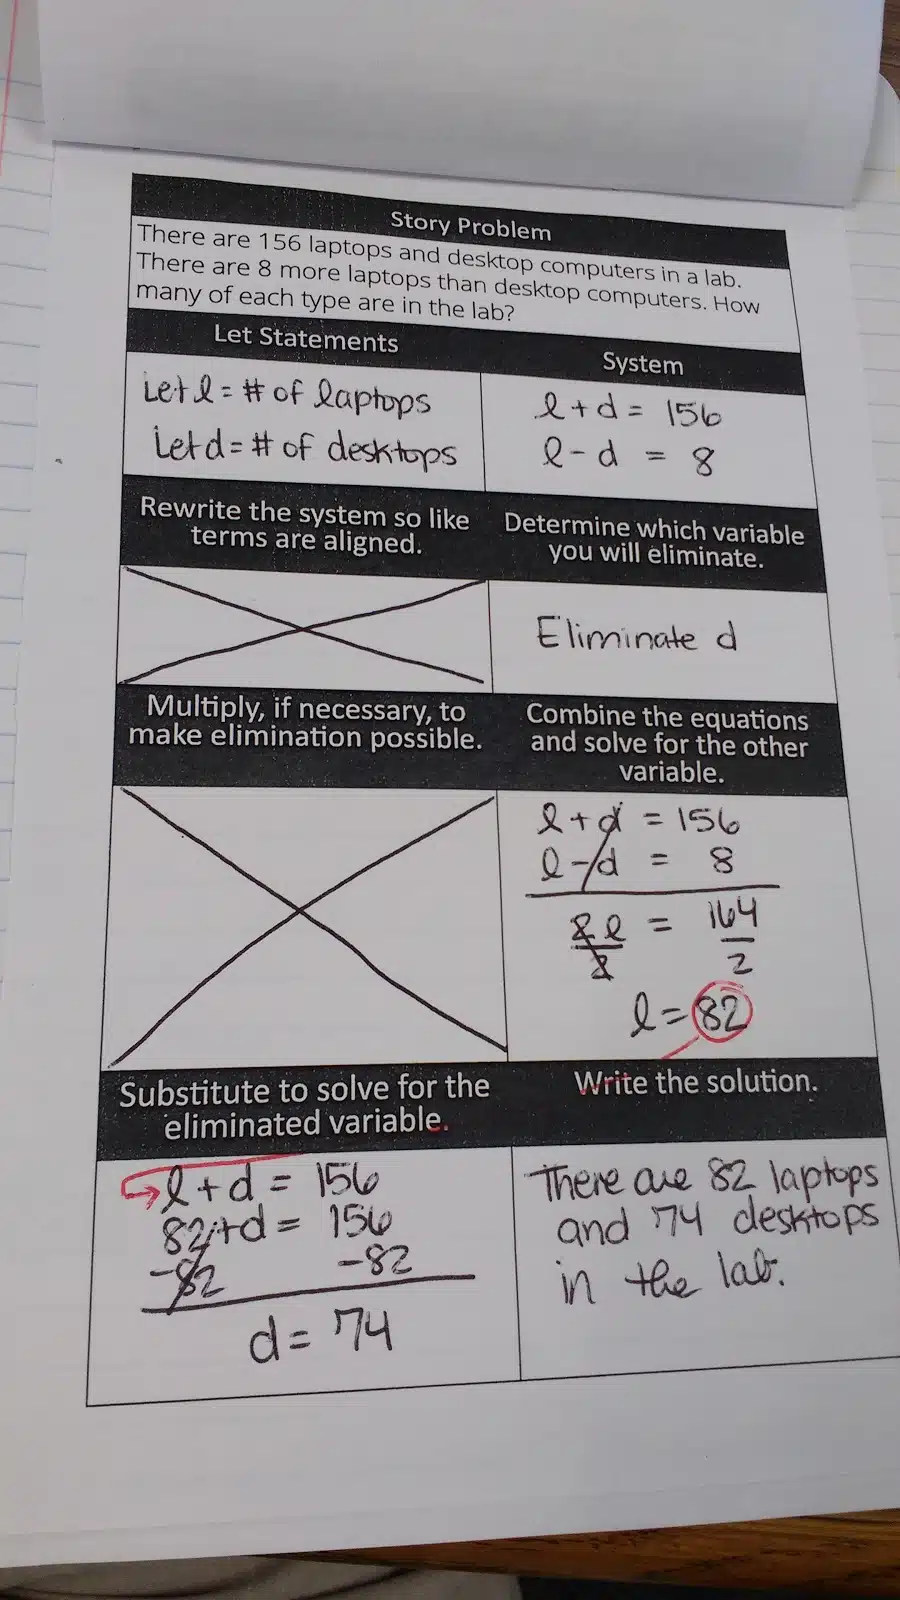 Story Problem
There are 156 laptops and desktop computers in a lab.
There are 8 more laptops than desktop computers. How
many of each type are in the lab?
Let Statements
Let l = # of laptops
Let d = # of desktops
System
l + d = 156
l - d = 8
Rewrite the system so like
terms are aligned.
Determine which variable
you will eliminate.
Eliminate d
Multiply, if necessary, to
make elimination possible.
Combine the equations
and solve for the other
variable.
l + d = 156
l - d = 8
2l = 164
2 2
l = 82
Substitute to solve for the
eliminated variable.
l + d = 156
82 + d = 156
-82 -82
d = 74
Write the solution.
There are 82 laptops
and 74 desktops
in the lab.